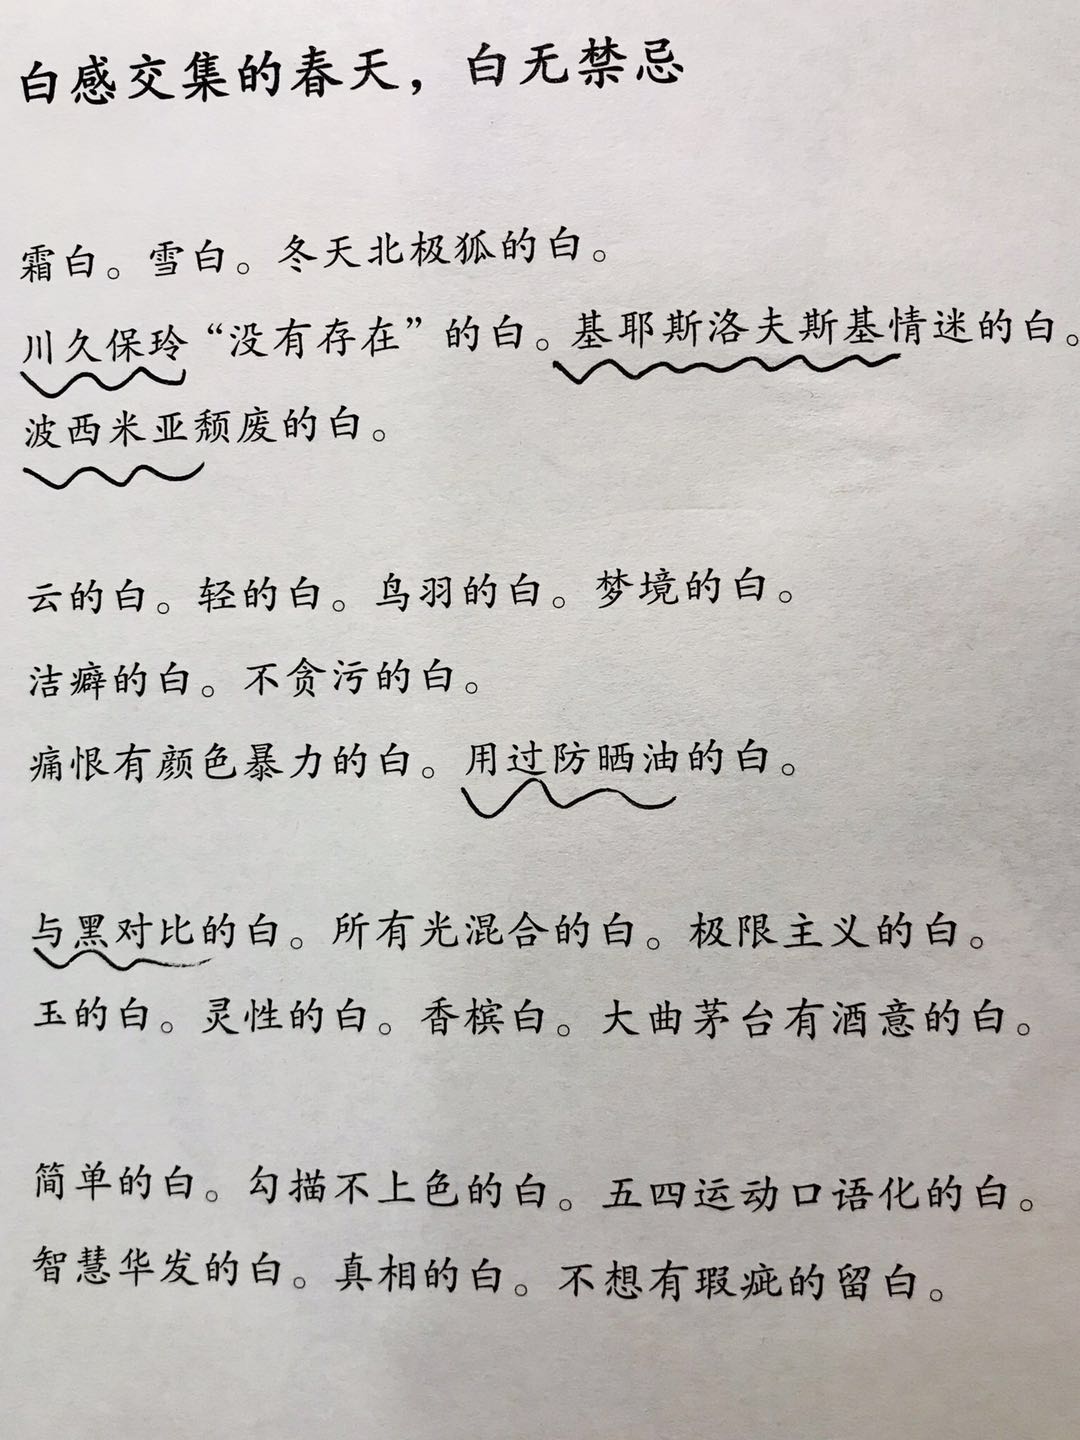 白感交集的春天，白无禁忌
霜白。雪白。冬天北极狐的白。
川久保玲“没有存在”的白。基耶斯洛夫斯基情迷的白。
波西米亚颓废的白。
云的白。轻的白。鸟羽的白。梦境的白。
洁癖的白。不贪污的白。
痛恨有颜色暴力的白。用过防晒油的白。
与黑对比的白。所有光混合的白。极限主义的白。
玉的白。灵性的白。香槟白。大曲茅台有酒意的白。
简单的白。勾描不上色的白。五四运动口语化的白。
智慧华发的白。真相的白。不想有瑕疵的留白。